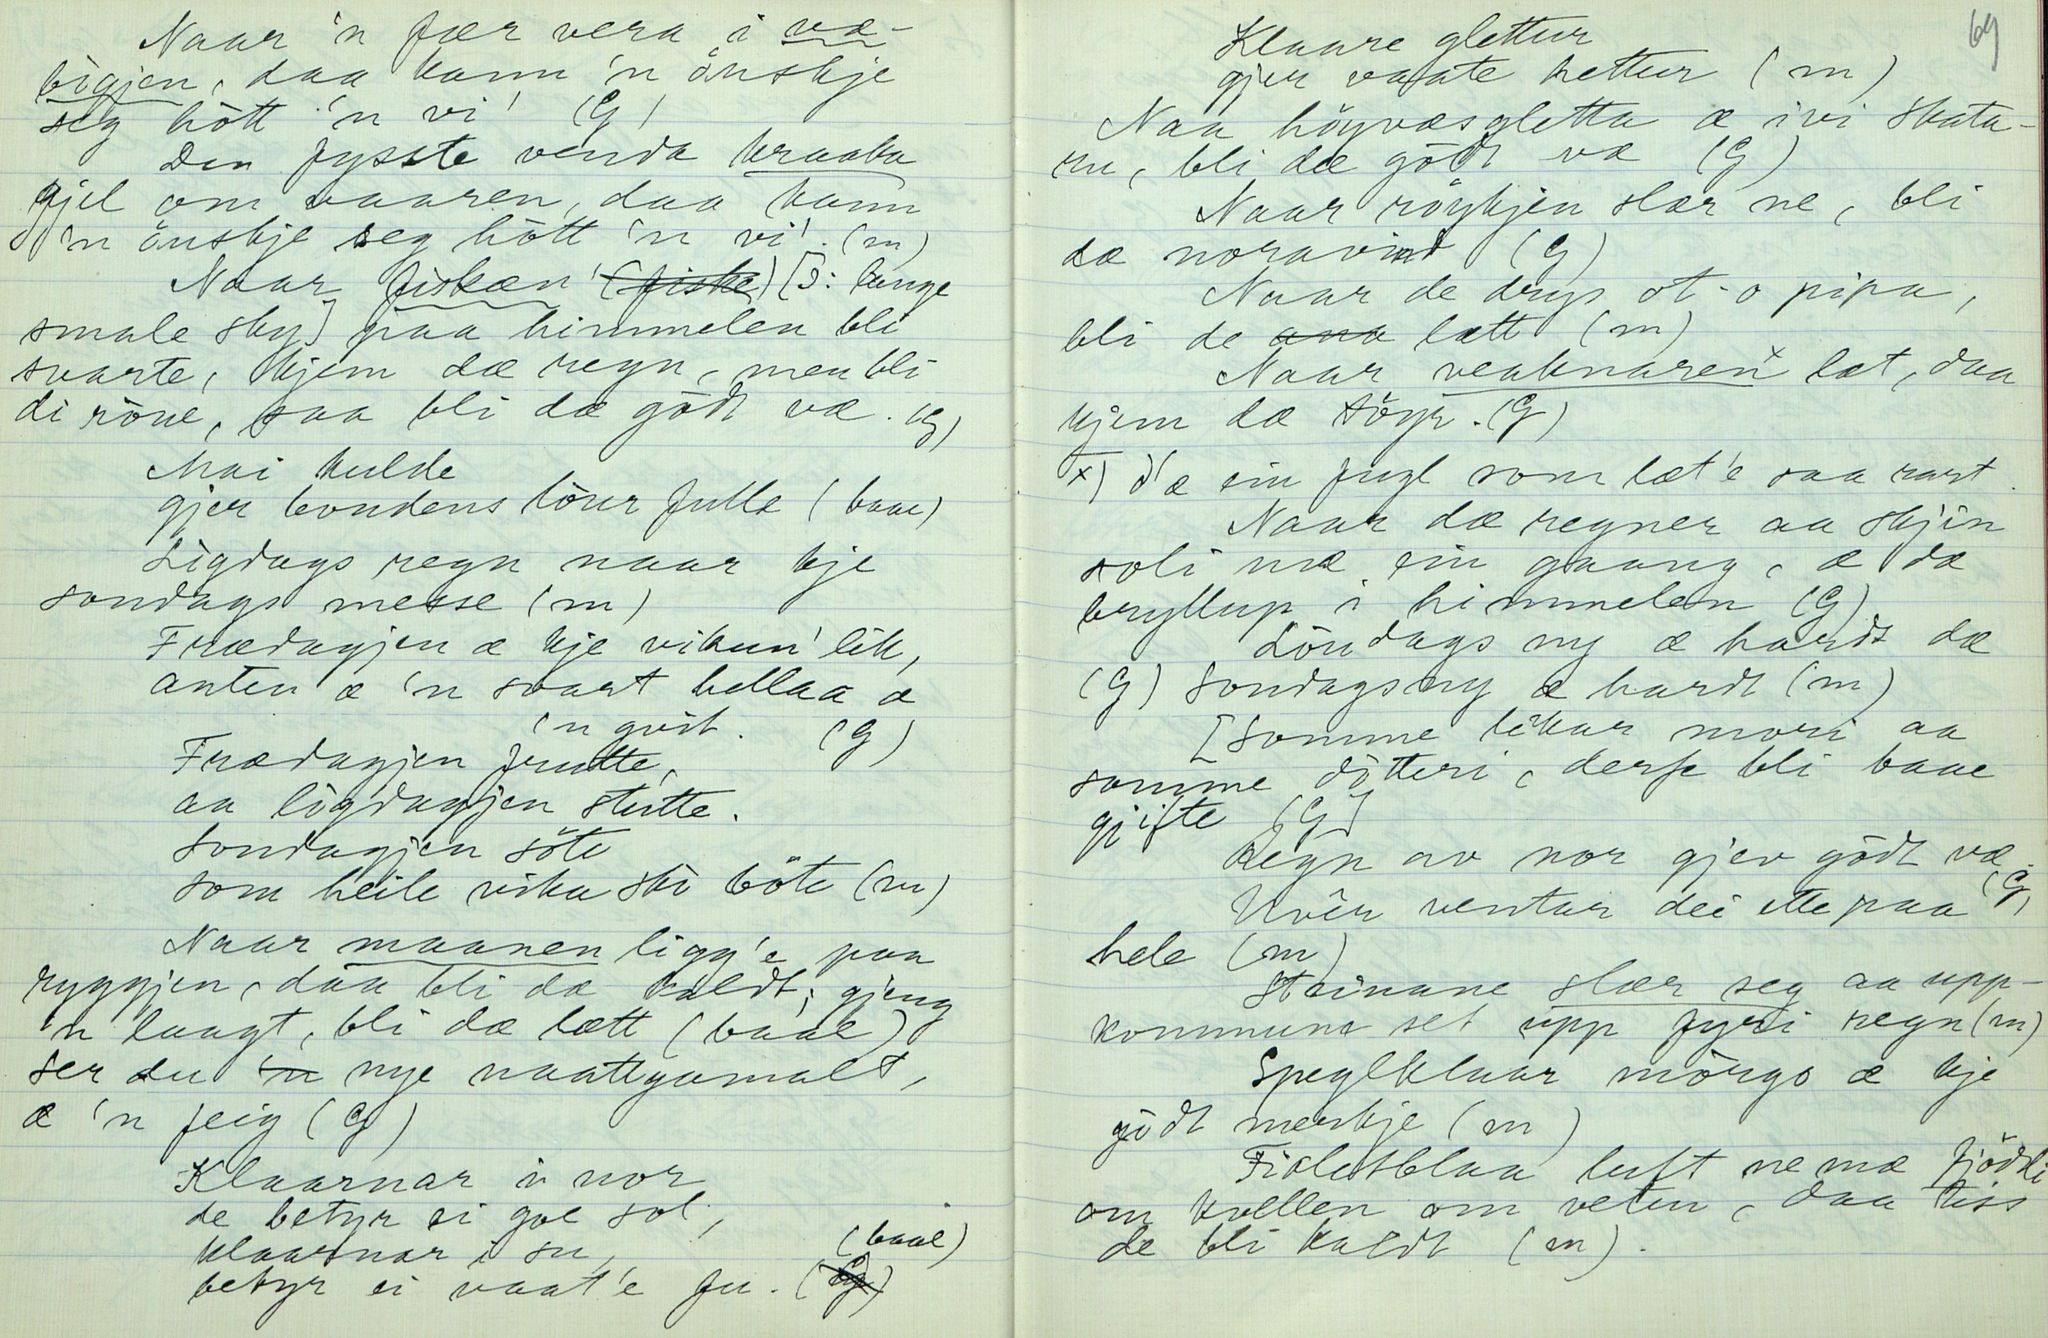 Naar 'n fær vera i væ-
bigjen, daa kann 'n önskje
seg hött 'n vi' (G)
Den fysste venda kraaka
gjel om vaaren, daa kann
'n önskje seg hött 'n vi'. (m)
Naar fiskan' (fiske) [ɔ: lange
smale sky] paa himmelen bli
svarte, kjem dæ regn, men bli
di röue, saa bli dæ gödt væ. (G)
Mai kulde
gjer bondens löur fulle (baae)
Lögdags regn naar kje
sondags messe (m)
Frædagjen æ kje vikun' lik,
anten æ 'n svart hellaa æ
'n gvit. (G)
Frædagjen frutte,
aa lögdagjen stutte.
Sondagjen söte
som heile vika ski böte (m)
Naar maanen ligg'e paa
ryggjen, daa bli dæ kaldt; gjeng
'n laagt, bli dæ lætt (baae)
Ser du 'n nye naattgamalt,
æ 'n feig (G)
Klaarnar i nor
de betyr ei goe sol,
klaarnar i su,
(baae)
betyr ei vaat'e fu. (G)
69
Klaare glettur
gjer vaate hettur (m)
Naa höyvæsgletta æ ivi Skata-
ru, bli dæ gödt væ (G)
Naar röykjen slær ne, bli
dæ noravind (G)
Naar de dryp ot-o pipa,
bli de ana lætt (m)
Naar veaknaren x læt, daa
kjem dæ söyr. (G)
x) d'æ ein fugl som læt'e saa rart.
Naar dæ regner aa skjin
soli mæ ein gaang, æ dæ
bryllup i himmelen (G)
Löndags ny æ hardt dæ
(G) Sondagsny æ hardt (m)
[Somme likar mori aa
somme dötteri, derfe bli baae
gjifte (G)]
Regn av nor gjev gödt væ. (G)
Uvêr ventar dei ette paa
hele (m)
Steinane slær seg aa upp-
kommune set upp fyri regn (m)
Speglklaar mörgo æ kje
gödt merkje (m)
Fioletblaa luft ne mæ fjöddli
om kvellen om veten, daa viss
de bli kaldt (m).